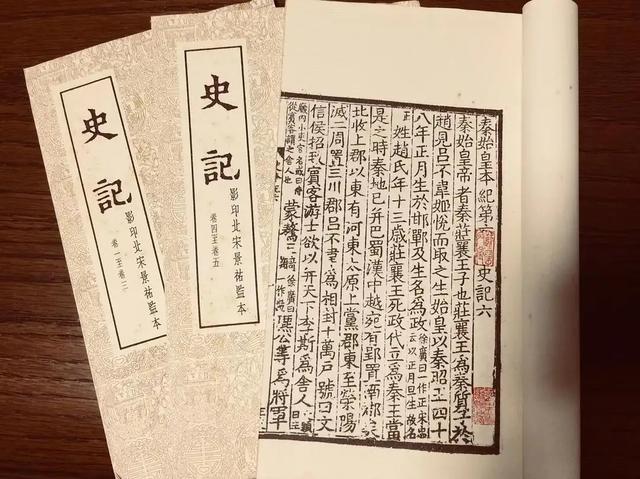 史記
影印北宋景祐監本
卷一至卷三
史記
影印北宋景祐監本
卷四至卷五
秦始皇本紀第 史記六
秦始皇帝者秦莊襄王子也莊襄王爲秦質子於
趙見呂不韋姬悅而取之生始皇以秦昭王四十
八年正月生於邯鄲及生名爲政徐廣曰一作正宋忠云以正月旦生故名正
姓趙氏年十三歲莊襄王死政代立爲秦王當
是之時秦地已并巴蜀漢中越宛有郢置南郡矣
北收上郡以東有河東太原上黨郡東至滎陽
滅二周置三川郡呂不韋爲相封十萬戶號曰文
信侯招致賓客游士欲以并天下李斯爲舍人
廄內小吏官名或曰侍從賓客謂之舍人也 蒙驁王齮徐廣曰一作 麃公等爲將軍